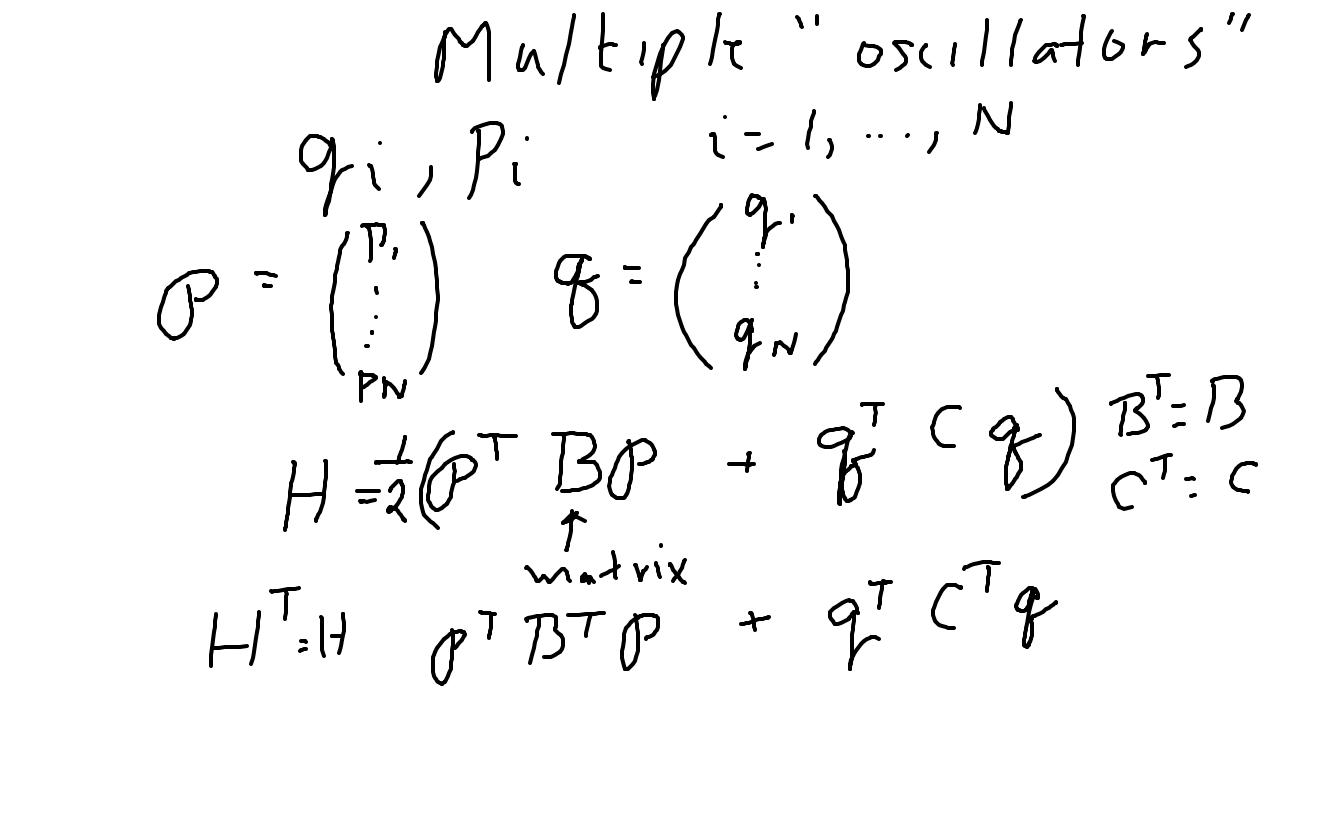 Multiple "oscillators"
qi, Pi i = 1, ..., N
P = (P1 ⋮ PN) q = (q1 ⋮ qN)
H = 1/2 (P^T B P + q^T C q) B^T = B
C^T = C
↑
matrix
H^T = H P^T B^T P + q^T C^T q